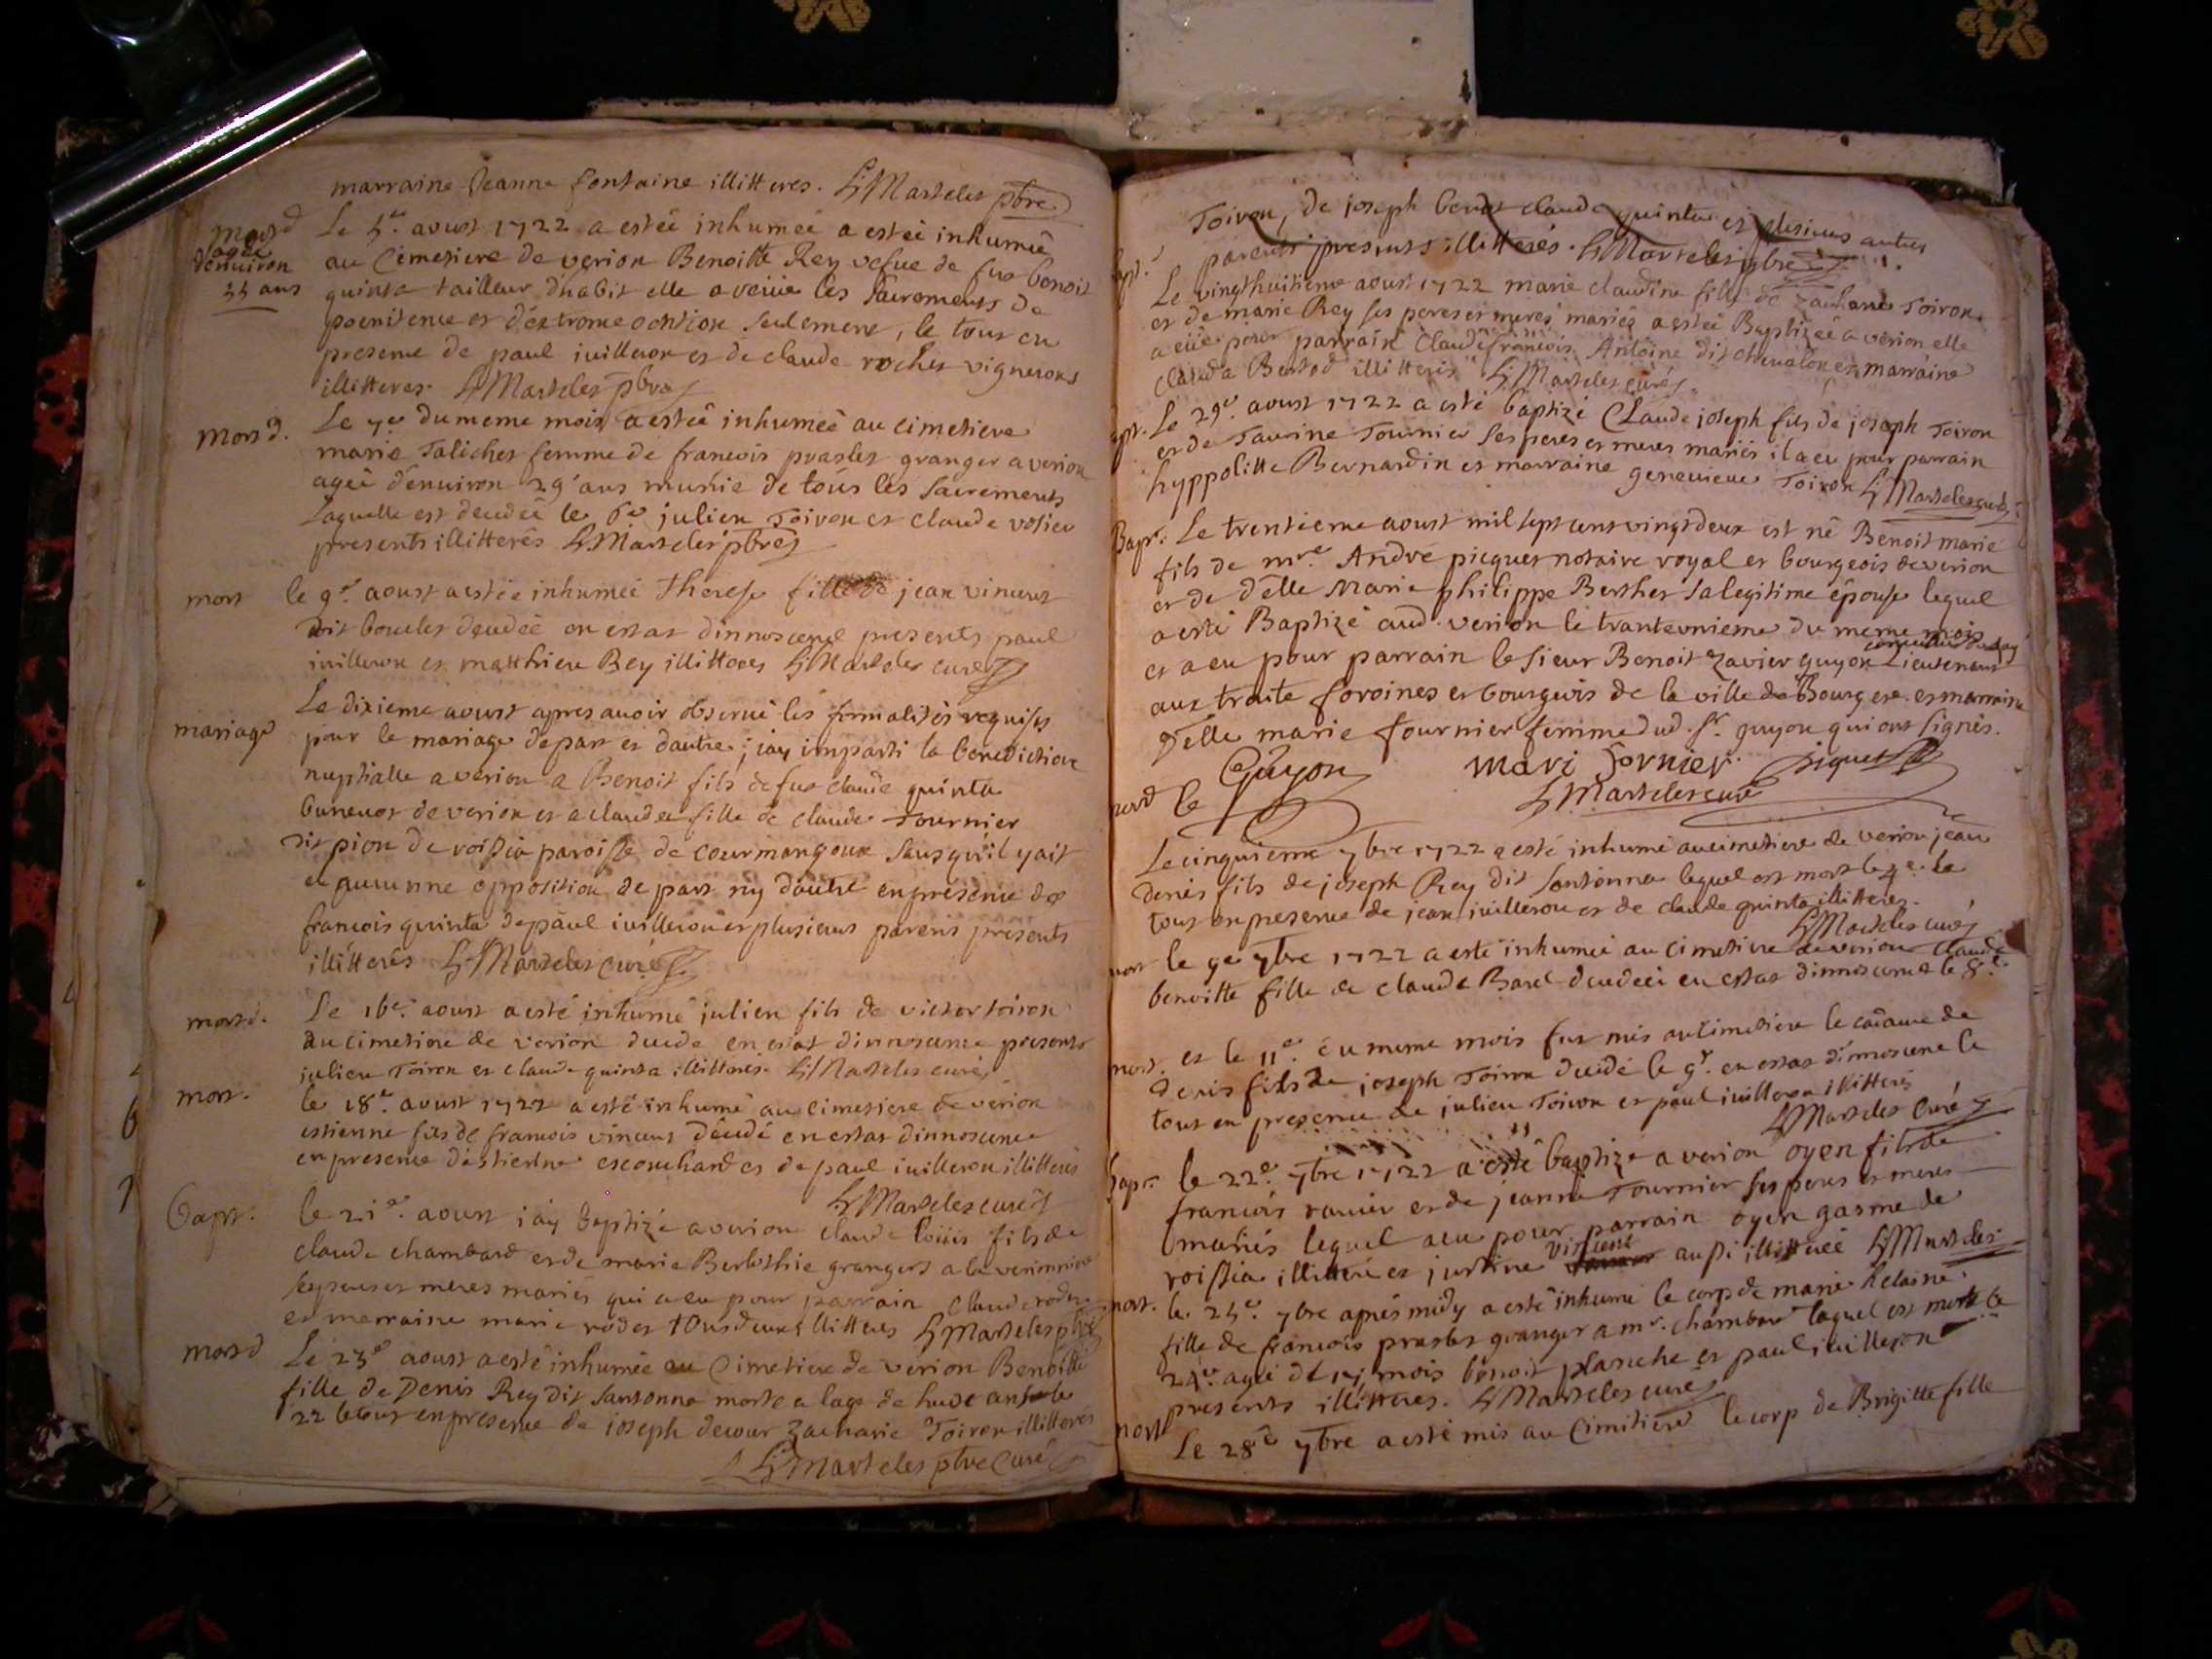 marraine Jeanne fontaine illitteres. Martelet pbre
mort
agée
d'enuiron
55 ans
Le 5e. aoust 1722 a estéé inhumeé a estéé inhumeé
au Cimetiere de verion Benoitte Rey vefue de fus benoit
quinta tailleur d'habit elle a les Sacrements de
poenitence et d'extreme onction Seulement, le tout en
presence de paul iuilleron et de claude rochet vignerons
illitteres. Martelet pbre
mort.
Le 7e du meme mois a estéé inhumeé au cimetiere
marie Talichet femme de francois praslet granger a verion
ageé d'enuiron 29 ans munie de tous les Sacrements
Laquelle est decedeé le 6e julien Toiron et claude
presents illitterés Martelet pbre
mort
le 9e. aoust a estéé inhumeé therese fille de jean vincent
dit bouclet decedéé en estat dinnoscence presents paul
iuilleron et matthieu Rey illitteres Martelet curé
mariage
Le dixieme aoust apres auoir obserué les formalités requises
pour le mariage de part et dautre, iay imparti la benediction
nuptialle a verion a Benoit fils de fus claude quinta
de verion et a claudea fille de claude Tournier
dit pion de roissia paroisse de courmangoux Sans qu'il y ait
eu aucunne opposition de part ny dautre en presence de
francois quinta de paul iuilleron et plusieurs parens presents
illitterés Martelet curé
mort.
Le 16e. aoust a esté inhumé julien fils de victor toiron
au cimetiere de verion decede en estat dinnoscence presents
julien Toiron et claude quinta illitterés. Martelet curé
mort.
le 18e. aoust 1722 a esté inhumé au cimetiere de verion
estienne fils de francois vincent décédé en estat dinnoscence
en presence d'estienne escouchard et de paul iuilleron illitterés
Martelet curé
bapt.
le 21e. aoust iay baptizé a verion claude loüis fils de
claude chambard et de marie grangers a la
ses peres et meres mariés qui a eu pour parrain claude rodet
et marraine marie rodet tous deux illitteres Martelet pbre
mort
Le 23e aoust a esté inhumée au Cimetiere de verion Benoitte
fille de Denis Rey dit santonna morte a lage de huit ans le
22 le tout en presence de joseph decour Zacharie Toiron illitterés
Martelet pbre Curé
Toiron, de joseph claude quinta et plusieurs autres
parents presents illitterés. Martelet pbre
bapt.
Le vingthuitieme aoust 1722 marie claudine fille de zacharie Toiron
et de marie Rey ses peres et meres mariés a estéé Baptizeé a verion elle
a eüe pour parrain Claude francois Antoine dit cheualon et marraine
clauda Bertod illitteris Martelet curé
bapt.
Le 29e. aoust 1722 a esté baptizé Claude joseph fils de joseph Toiron
et de Taurine Tournier Ses peres et meres mariés il a eu pour parrain
hyppolitte Bernardin et marraine genevieue Toiron Martelet curé
Bapt.
Le trentieme aoust mil sept cent vingt deux est né Benoit marie
fils de mre. André picquet notaire royal et bourgeois de verion
et de delle Marie philippe Berthet sa legitime épouse lequel
a esté Baptizé aud. verion le tranteunieme du meme mois
et a eu pour parrain le sieur Benoit Zavier guyon Lieutenant
aux traite foroines et bourgeois de la ville de Bourg et marraine
delle marie fournier femme dud. sr. guyon qui ont signés.
Guyon mari fornier piquet
Martelet curé
mort le
Le cinquieme 7bre 1722 a esté inhumé au cimetiere de verion jean
denis fils de joseph Rey dit santonna lequel est mort le 4e. le
tout en presence de jean iuilleron et de claude quinta illitteres.
Martelet curé
mort
le 9e 7bre 1722 a esté inhumeé au cimetiere de verion claude
benoitte fille de claude Barel decedeé en estat dinnoscence le 8e.
mort.
et le 11e. du meme mois fut mis au cimetiere le cadaure de
denis fils de joseph Toiron decedé le 9e. en estat dinnoscence le
tout en presence de julien Toiron et paul iuilleron illitterés
Martelet Curé
bapt.
le 22e. 7bre 1722 a esté baptizé a verion oyen fils de
francois et de jeanne Tournier ses peres et meres
mariés lequel a eu pour parrain oyen gasme de
roissia illitteré et justine vincent aussi illitteréé Martelet
mort.
le 25e. 7bre aprés midy a esté inhumé le corp de marie helaine
fille de francois praslet granger a mr. chambard laquel est morte le
24e. ageé de mois benoit planche et paul iuilleron
presents illitteres. Martelet curé
mort
Le 28e 7bre a esté mis au Cimitiere le corp de Brigitte fille